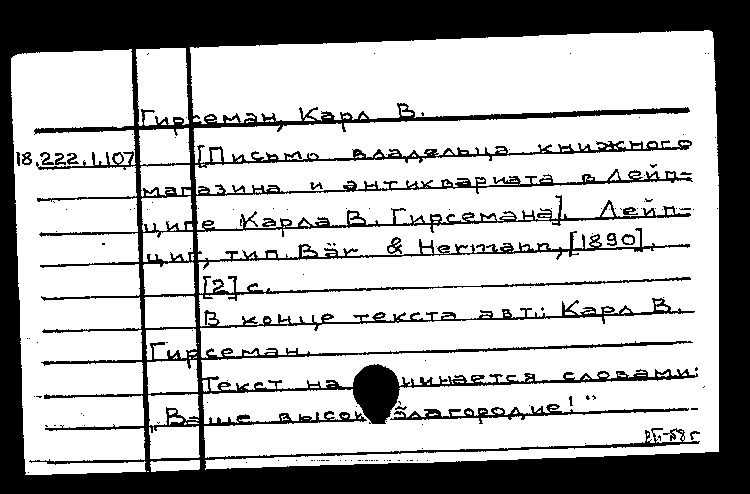 Гирсеман, Карл В.
18.222.1.107 [Письмо владельца книжного
магазина и антиквариата в Лейп=
циге Карла В. Гирсемана]. Лейп=
циг, тип. Bär & Hermann, [1890].
[2] с.
В конце текста авт.: Карл В.
Гирсеман.
Текст начинается словами:
„Ваше высокоблагородие!"